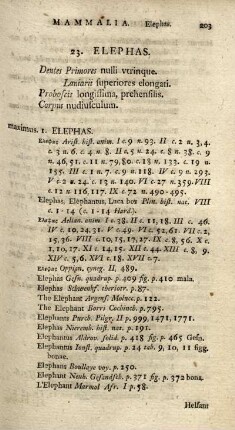 MAMMALIA. Elephas. 203
23. ELEPHAS.
Dentes Primores nulli vtrinque.
Laniarii superiores elongati.
Proboscis longissima, prehensilis.
Corpus nudiusculum.
maximus. 1. ELEPHAS.
Arist. hist. anim. I c. 9 n. 93. II c. 2 n. 3, 4.
c. 3 n. 6. c. 4 n. 8. II c. 5 n. 24. c. 8 n. 38. c. 9
n. 46, 51. c. 11 n. 79, 80. c. 18 n. 133. c. 19 n.
155. III c. 1 n. 7. c. 9 n. 118. IV c. 9 n. 293.
V c. 2 n. 24. c. 13 n. 140. VI c. 27 n. 359. VIII
c. 12 n. 116, 117. IX c. 72 n. 490-495.
Elephas, Elephantus, Luca bos Plin. hist. nat. VIII
c. 1-14 (c. 1-14 Hard.).
Aelian. anim. I c. 38. II c. 11, 18. III c. 46.
IV c. 10, 24, 31. V c. 49. VI c. 52, 61. VII c. 2,
15, 36. VIII c. 10, 15, 17, 27. IX c. 8, 56. X c.
1, 10, 17. XI c. 14, 15. XII c. 44. XIII c. 8, 9.
XIV c. 5, 6. XVI c. 18. XVII c. 29.
Oppian. cyneg. II, 489.
Elephas Gesn. quadrup. p. 409 fig. p. 410 mala.
Elephas Schwenkf. theriotr. p. 87.
The Elephant Argens. Molucc. p. 122.
The Elephant Borri Cochinch. p. 795.
Elephants Purch. Pilgr. II p. 999, 1471, 1771.
Elephas Nieremb. hist. nat. p. 191.
Elephantus Aldrov. solid. p. 418 fig. p. 465 Gesn.
Elephantus Ionst. quadrup. p. 24 tab. 9, 10, 11 figg.
bonae.
Elephans Boullaye voy. p. 250.
Elephant Neuh. Gesandsch. p. 371 fig. p. 372 bona.
L'Elephant Marmol Afr. I p. 58.
Helfant